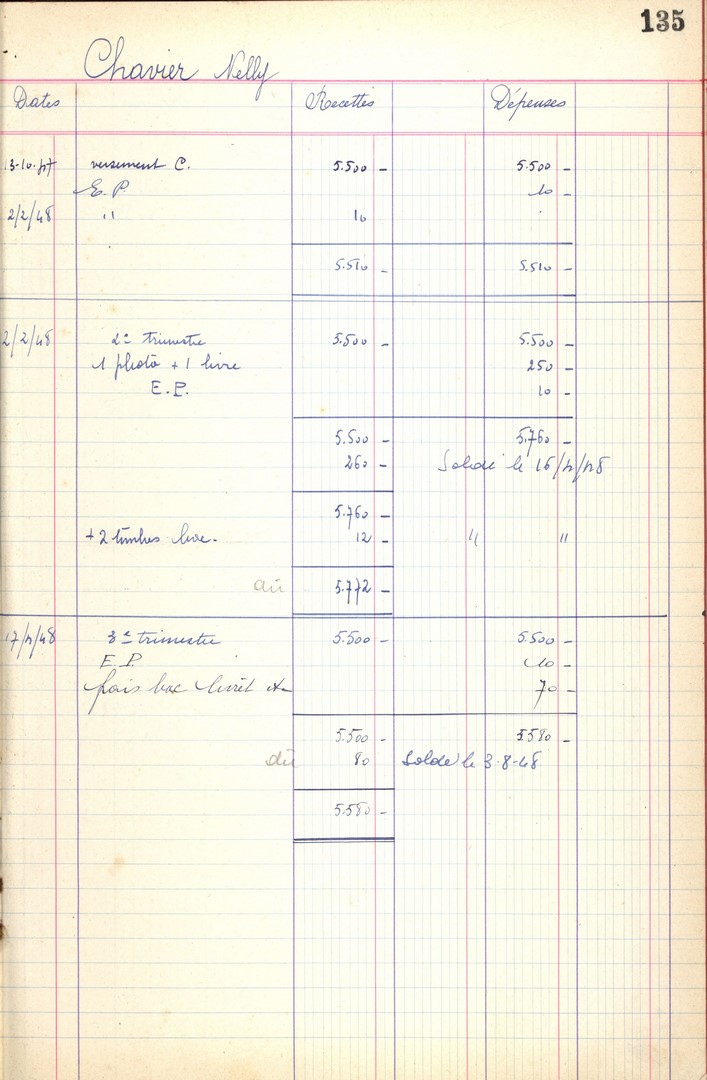 135
Chavier Nelly
Dates Recettes Dépenses
13-10-47 versement C. 5.500 - 5.500 -
E.P. 10 -
2/2/48 " 10
5.510 - 5.510 -
2/2/48 2e trimestre 5.500 - 5.500 -
1 photo + 1 livre 250 -
E.P. 10 -
5.500 - 5.760 -
260 - Soldé le 16/4/48
5.760 -
+ 2 timbres bac. 12 - " "
dû 5.772 -
17/4/48 3e trimestre 5.500 - 5.500 -
E.P. 10 -
frais bac livret 70 -
5.500 - 5.580 -
dû 80 Soldé le 3-8-48
5.580 -